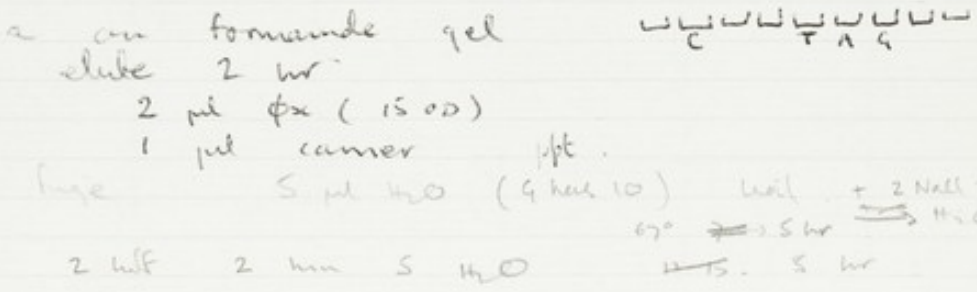 a on formamide gel
C T A G
elute 2 hr
2 µl φx (15 OD)
1 µl carrier ppt.
5 µl H2O (G has 10) boil + 2 NaCl
67° 5 hr
2 hiff 2 hin 5 H2O 5 hr